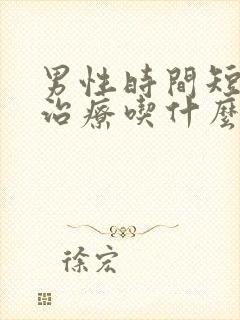 男性時間短
治療喫什麼
徐宏